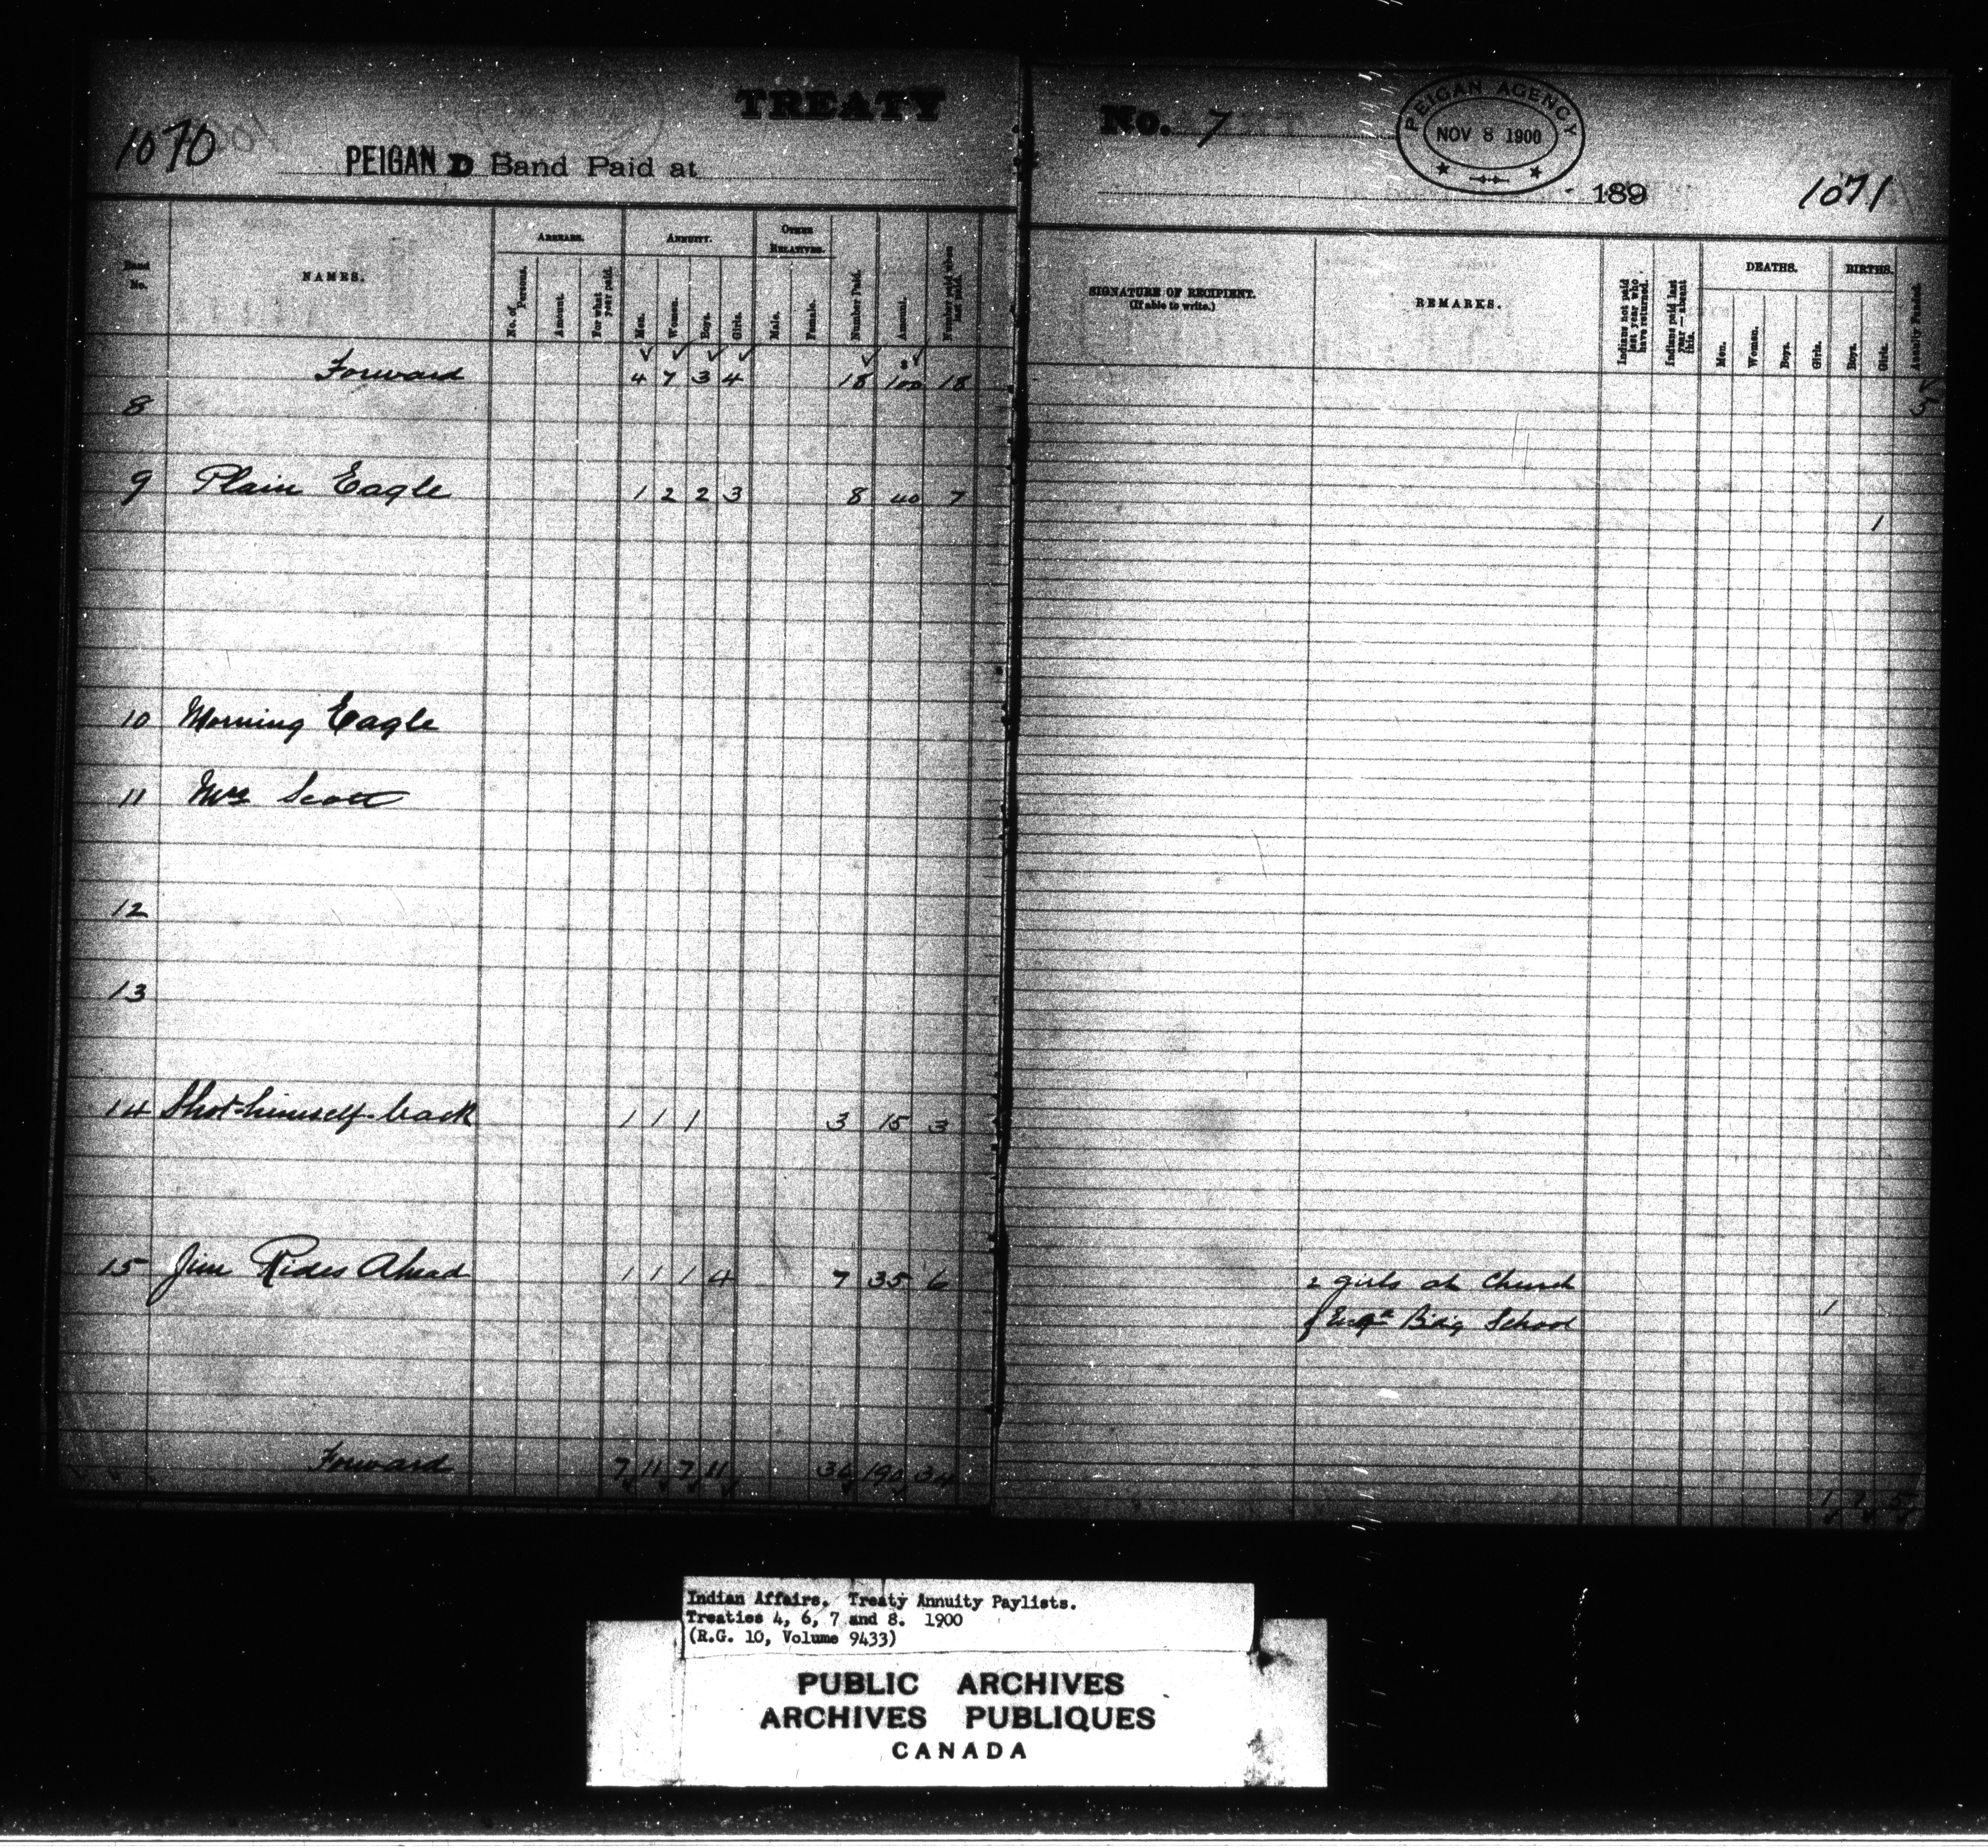 TREATY
1070
PEIGAN D Band Paid at
Band No.
NAMES.
ARREARS.
No. of Persons.
Amount.
For what year paid.
ANNUITY.
Men.
Women.
Boys.
Girls.
OTHER RELATIVES.
Male.
Female.
Number Paid.
Amount.
Number paid when last paid.
Forward 4 7 3 4 18 100 18
8
9 Plain Eagle 1 2 2 3 8 40 7
10 Morning Eagle
11 Mrs Scott
12
13
14 Shot-himself-back 1 1 1 3 15 3
15 Jim Rides Ahead 1 1 1 4 7 35 6
Forward 7 11 7 11 36 190 34
No. 7
PEIGAN AGENCY
NOV 8 1900
189
1071
SIGNATURE OF RECIPIENT.
(If able to write.)
REMARKS.
Indians not paid last year who have returned.
Indians paid last year—absent this.
DEATHS.
Men.
Women.
Boys.
Girls.
BIRTHS.
Boys.
Girls.
Annuity Funded.
1
2 girls at Church
f Bdg School
1
Indian Affairs. Treaty Annuity Paylists.
Treaties 4, 6, 7 and 8. 1900
(R.G. 10, Volume 9433)
PUBLIC ARCHIVES
ARCHIVES PUBLIQUES
CANADA